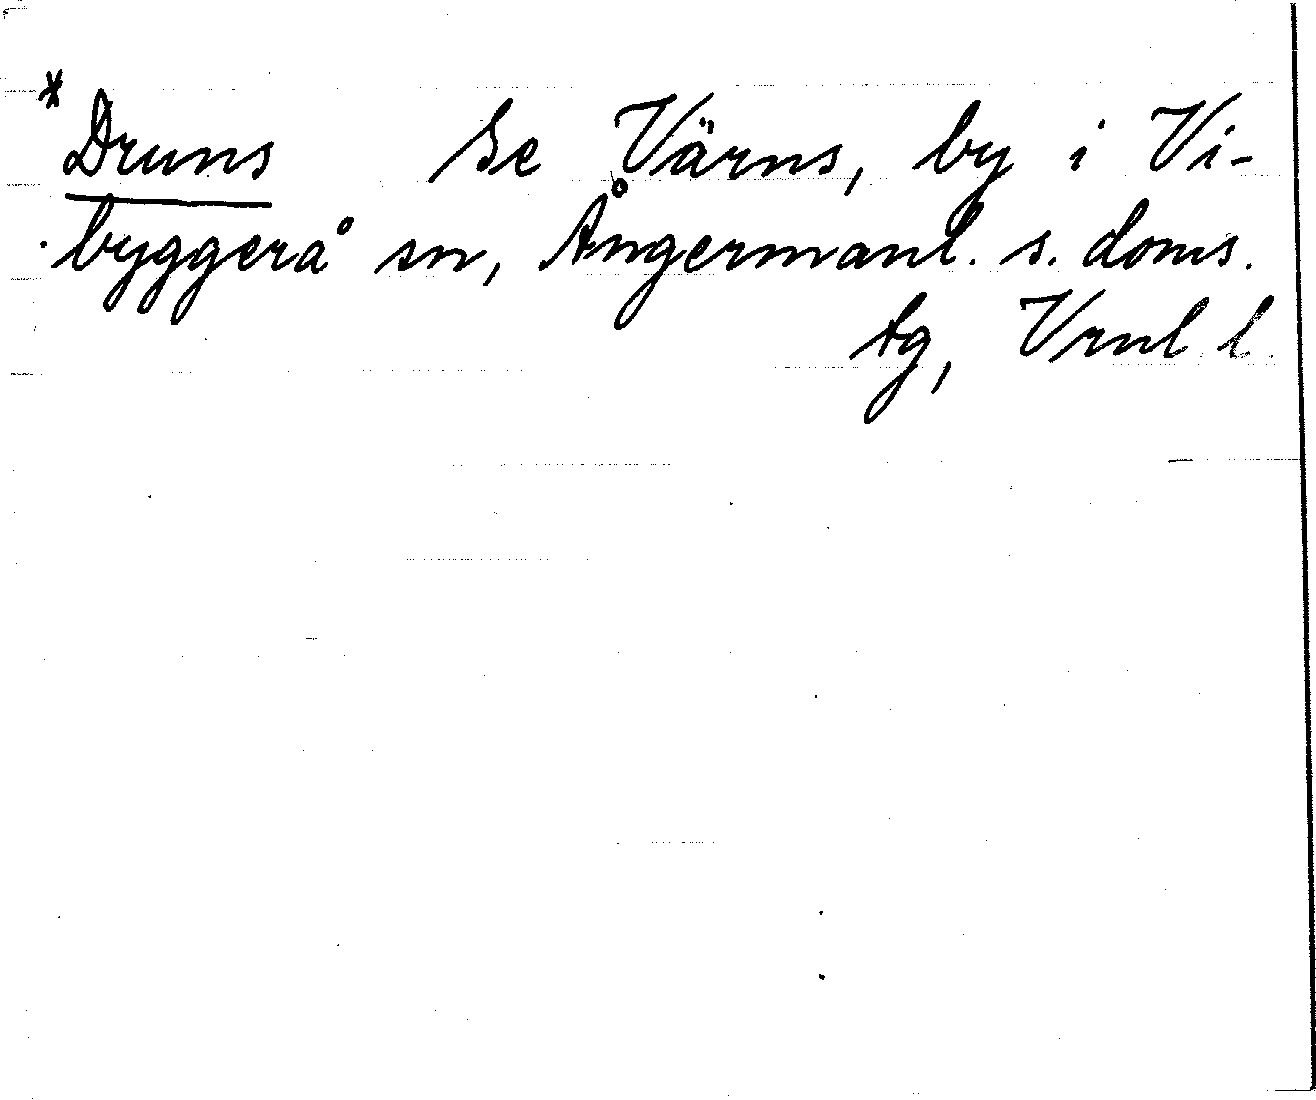 *Druns Se Värns, by i Vi-
byggerå sn, Ångermanl. s. doms.
tg, Vrnl l.